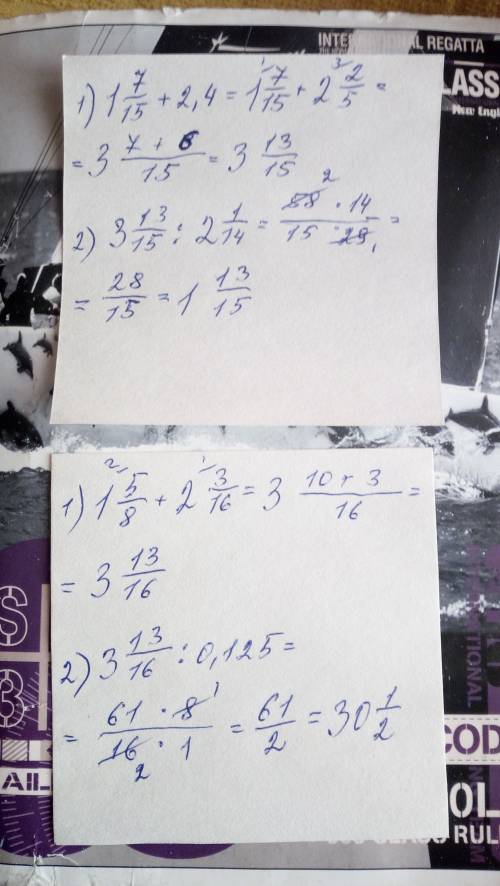 INTERNATIONAL REGATTA
LASS
New Engl
1) 1 7/15 + 2,4 = 1 7/15 + 2 2/5 =
= 3 (7 + 6)/15 = 3 13/15
2) 3 13/15 : 2 1/14 = (58 · 14)/(15 · 29) =
= 28/15 = 1 13/15
1) 1 5/8 + 2 3/16 = 3 (10 + 3)/16 =
= 3 13/16
2) 3 13/16 : 0,125 =
= (61 · 8)/(16 · 1) = 61/2 = 30 1/2
S
3
AIL
COD
OL
CLASS RUL